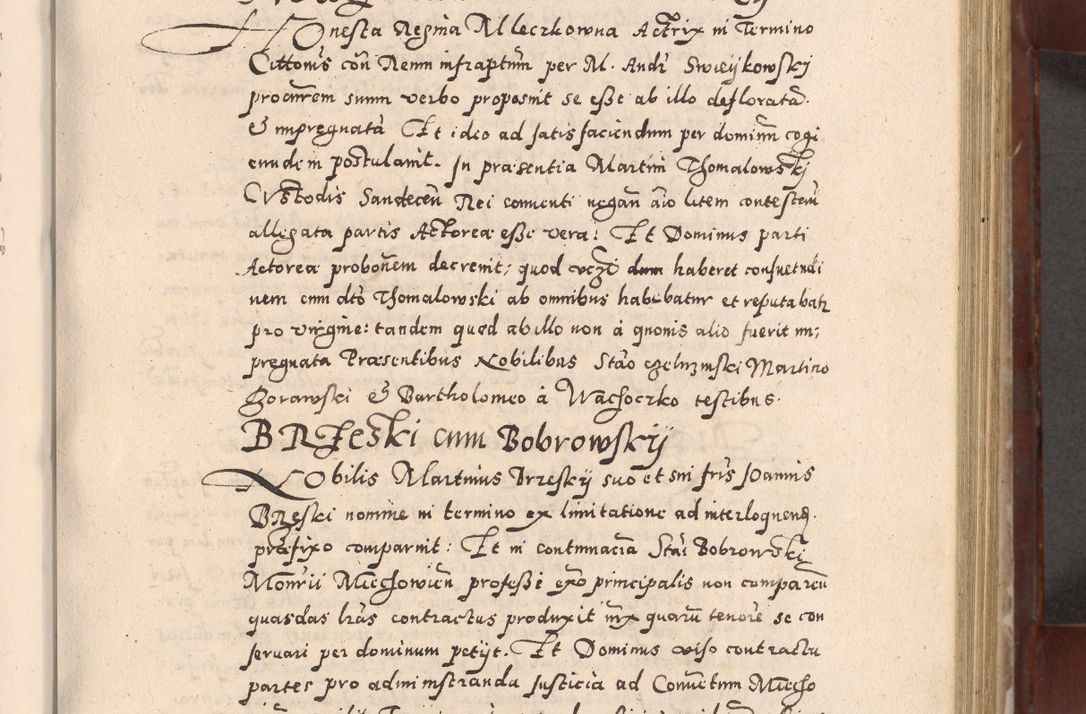 Honesta Regina Mleczkowna Actrix in Termino
Cittonis coñ Reum infraptum per M. Andr Swieykowsky
procurem suum verbo proposuit se esse ab illo deflorata.
& impregnatã Et ideo ad satisfaciendum per dominum cogi
eundem postulauit. In præsentia Martini Thomalowsky
Custodis Sandecen Rei conuenti negan aio litem contesten
allegata partis Actoreæ esse vera: Et Dominus parti
Actoreæ probonem decreuit; quod dum haberet consuetudi
nem cum dto Thomalowski ab omnibus habebatur et reputabatr
pro virgine: tandem quod ab illo non à quouis alio fuerit im;
pregnata Præsentibus Nobilibus Stão Martino
Gorawski & Bartholomeo à Wachoczko testibus.
BRZeski cum Bobrowsky
Nobilis Martinus Brzesky suo et sui fris Joannis
BRzeski nomine in termino ex limitatione ad interloquend.
præfixo comparuit: Et in contumaciã Stãi Bobrowsky
Monrii Miechouien professi exo principalis non comparen
quasdas lras contractus produxit iux quarũ tenore se con
seruari per dominum petijt. Et Dominus viso contractu
partes pro administranda Justicia ad Conuetum Miecho